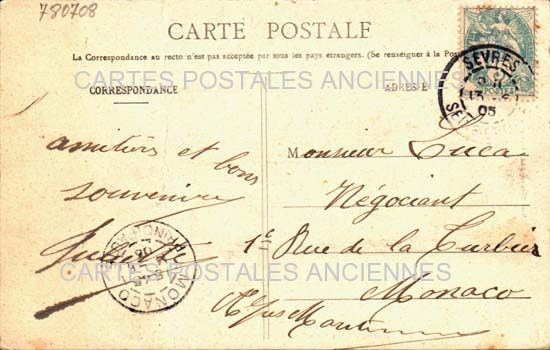 780708
CARTE POSTALE
La Correspondance au recto n'est pas acceptée par tous les pays étrangers. (Se renseigner à la Poste
CARTES POSTALES ANCIENNES
CORRESPONDANCE
ADRESSE
SEVRES
05
POSTES
amitiés et bons
souvenirs
Monsieur Luca
Négociant
1c Rue de la Turbie
Monaco
MONACO
CARTES POSTALES ANCIENNES